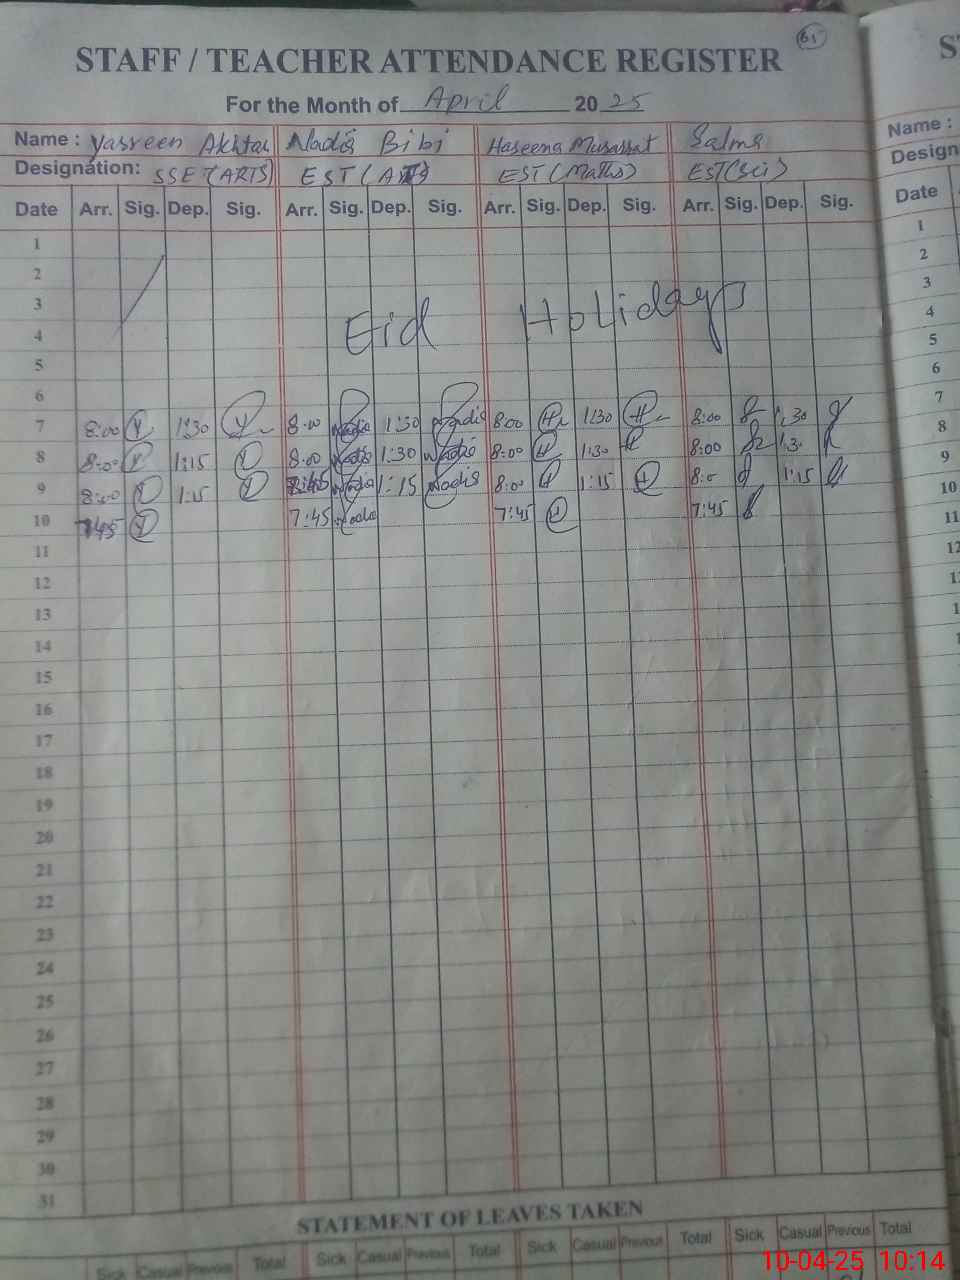 65
STAFF / TEACHER ATTENDANCE REGISTER
For the Month of April 2025
Name : Yasreen Akhtar Nadia Bibi Haseena Musarrat Salma
Designation: SSE (ARTS) EST (ARTS) EST (Maths) EST (Sci)
Date Arr. Sig. Dep. Sig. Arr. Sig. Dep. Sig. Arr. Sig. Dep. Sig. Arr. Sig. Dep. Sig.
1
2
3
4
Eid Holidays
5
6
7 8:00 Y 1:30 Y 8:00 Nadia 1:30 Nadia 8:00 H 1:30 H 8:00 1:30
8 8:00 Y 1:15 Y 8:00 Nadia 1:30 Nadia 8:00 H 1:30 H 8:00 1:30
9 8:00 Y 1:15 Y Nadia 1:15 Nadia 8:00 H 1:15 H 8:0 1:15
10 7:45 Y 7:45 Nadia 7:45 H 7:45
11
12
13
14
15
16
17
18
19
20
21
22
23
24
25
26
27
28
29
30
31
STATEMENT OF LEAVES TAKEN
Sick Casual Previous Total Sick Casual Previous Total Sick Casual Previous Total Sick Casual Previous Total
Name :
Design
Date
1
2
3
4
5
6
7
8
9
10
11
12
10-04-25 10:14